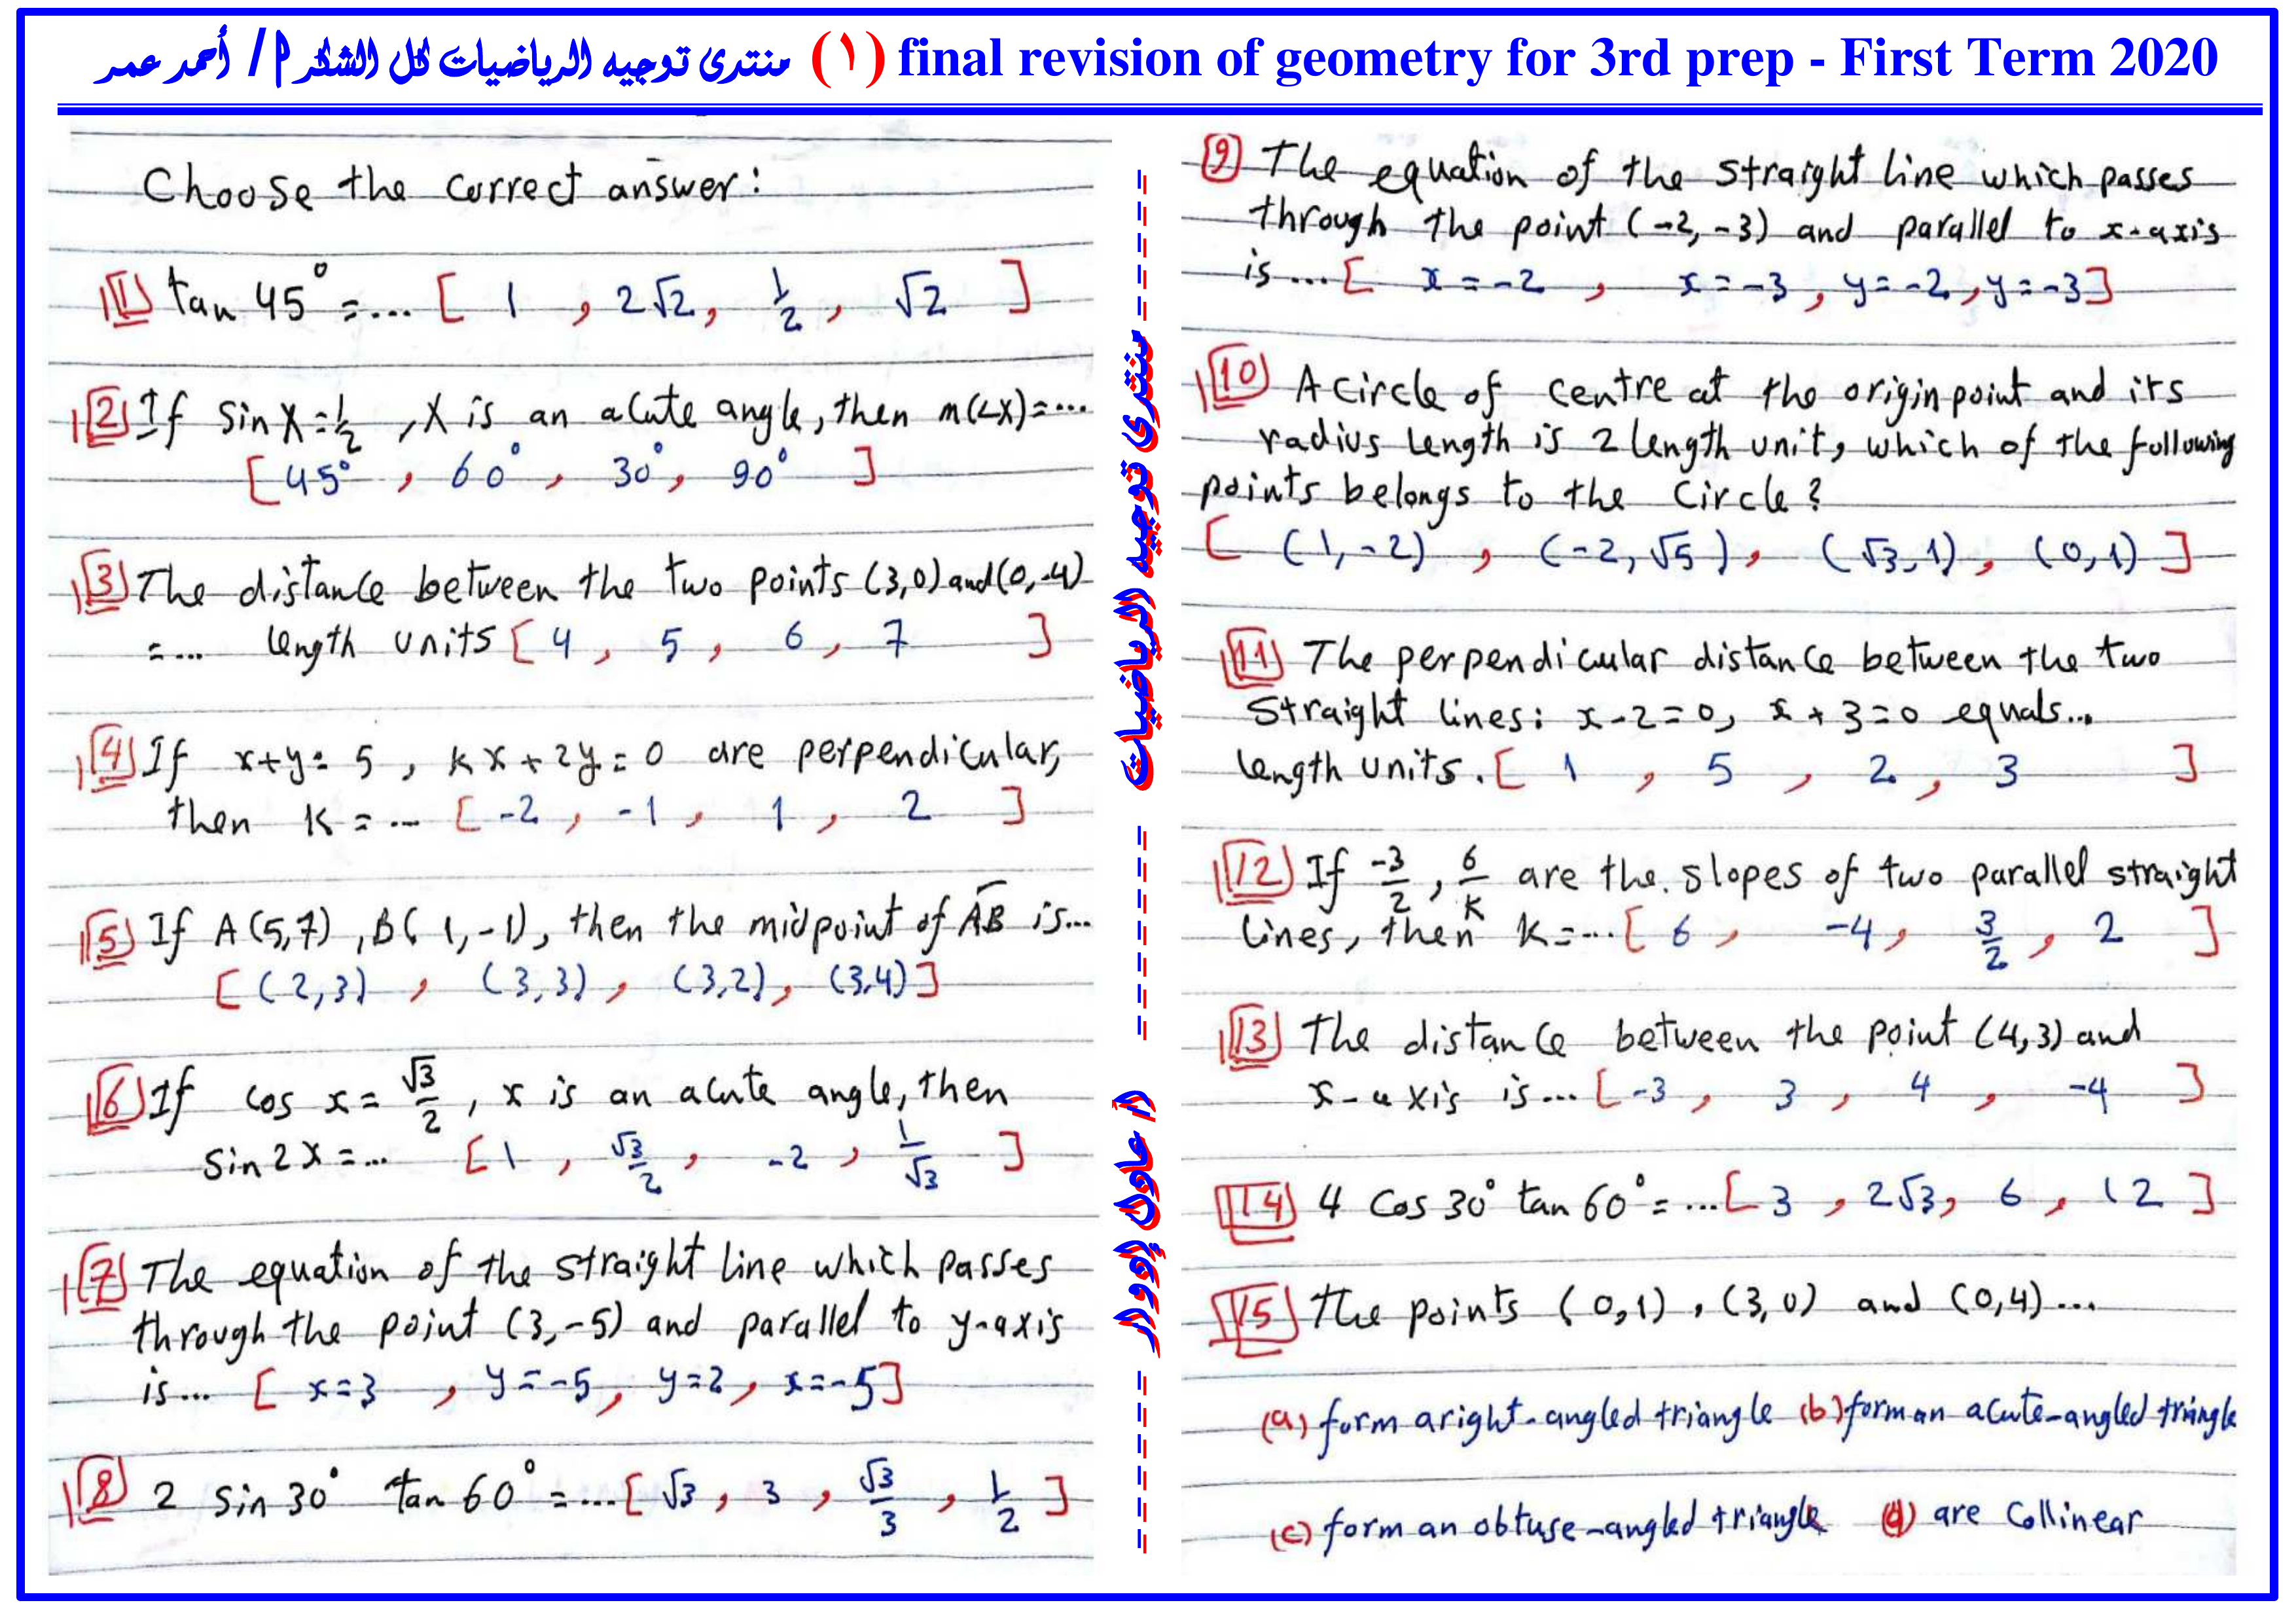 منتدى توجيه الرياضيات كل الشكر أ / أحمد عمر (١) final revision of geometry for 3rd prep - First Term 2020
Choose the correct answer:
1 tan 45° = ... [ 1 , 2√2 , 1/2 , √2 ]
2 If sin X = 1/2 , X is an acute angle, then m(∠X) = ...
[ 45° , 60° , 30° , 90° ]
3 The distance between the two points (3,0) and (0,-4)
= ... length units [ 4 , 5 , 6 , 7 ]
4 If x+y = 5 , kx + 2y = 0 are perpendicular,
then k = ... [ -2 , -1 , 1 , 2 ]
5 If A(5,7) , B(1,-1), then the midpoint of AB is...
[ (2,3) , (3,3) , (3,2) , (3,4) ]
6 If cos x = √3/2 , x is an acute angle, then
sin 2x = ... [ 1 , √3/2 , -2 , 1/√3 ]
7 The equation of the straight line which passes
through the point (3,-5) and parallel to y-axis
is ... [ x=3 , y=-5 , y=2 , x=-5 ]
8 2 sin 30° tan 60° = ... [ √3 , 3 , √3/3 , 1/2 ]
منتدى توجيه الرياضيات
أ/ عادل إدوار
9 The equation of the straight line which passes
through the point (-2,-3) and parallel to x-axis
is ... [ x=-2 , x=-3 , y=-2 , y=-3 ]
10 A circle of centre at the origin point and its
radius length is 2 length unit, which of the following
points belongs to the circle?
[ (1,-2) , (-2,√5) , (√3,1) , (0,1) ]
11 The perpendicular distance between the two
straight lines: x-2=0, x+3=0 equals...
length units. [ 1 , 5 , 2 , 3 ]
12 If -3/2 , 6/k are the slopes of two parallel straight
lines, then k = ... [ 6 , -4 , 3/2 , 2 ]
13 The distance between the point (4,3) and
x-axis is ... [ -3 , 3 , 4 , -4 ]
14 4 cos 30° tan 60° = ... [ 3 , 2√3 , 6 , 12 ]
15 The points (0,1) , (3,0) and (0,4) ...
(a) form a right-angled triangle (b) form an acute-angled triangle
(c) form an obtuse-angled triangle (d) are collinear